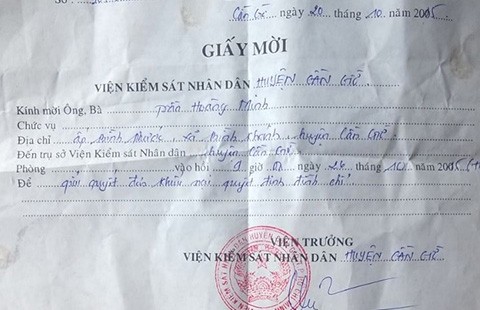 Số
Cần Giờ, ngày 20 tháng 10 năm 2005
GIẤY MỜI
VIỆN KIỂM SÁT NHÂN DÂN HUYỆN CẦN GIỜ
Kính mời Ông, Bà Trần Hoàng Minh
Chức vụ
Địa chỉ ấp Bình Phước, xã Bình Khánh, huyện Cần Giờ
Đến trụ sở Viện Kiểm sát Nhân dân huyện Cần Giờ
Phòng vào hồi 9 giờ 00 ngày 24 tháng 10 năm 2005
Để giải quyết đơn khiếu nại quyết định đình chỉ.
VIỆN TRƯỞNG
VIỆN KIỂM SÁT NHÂN DÂN HUYỆN CẦN GIỜ